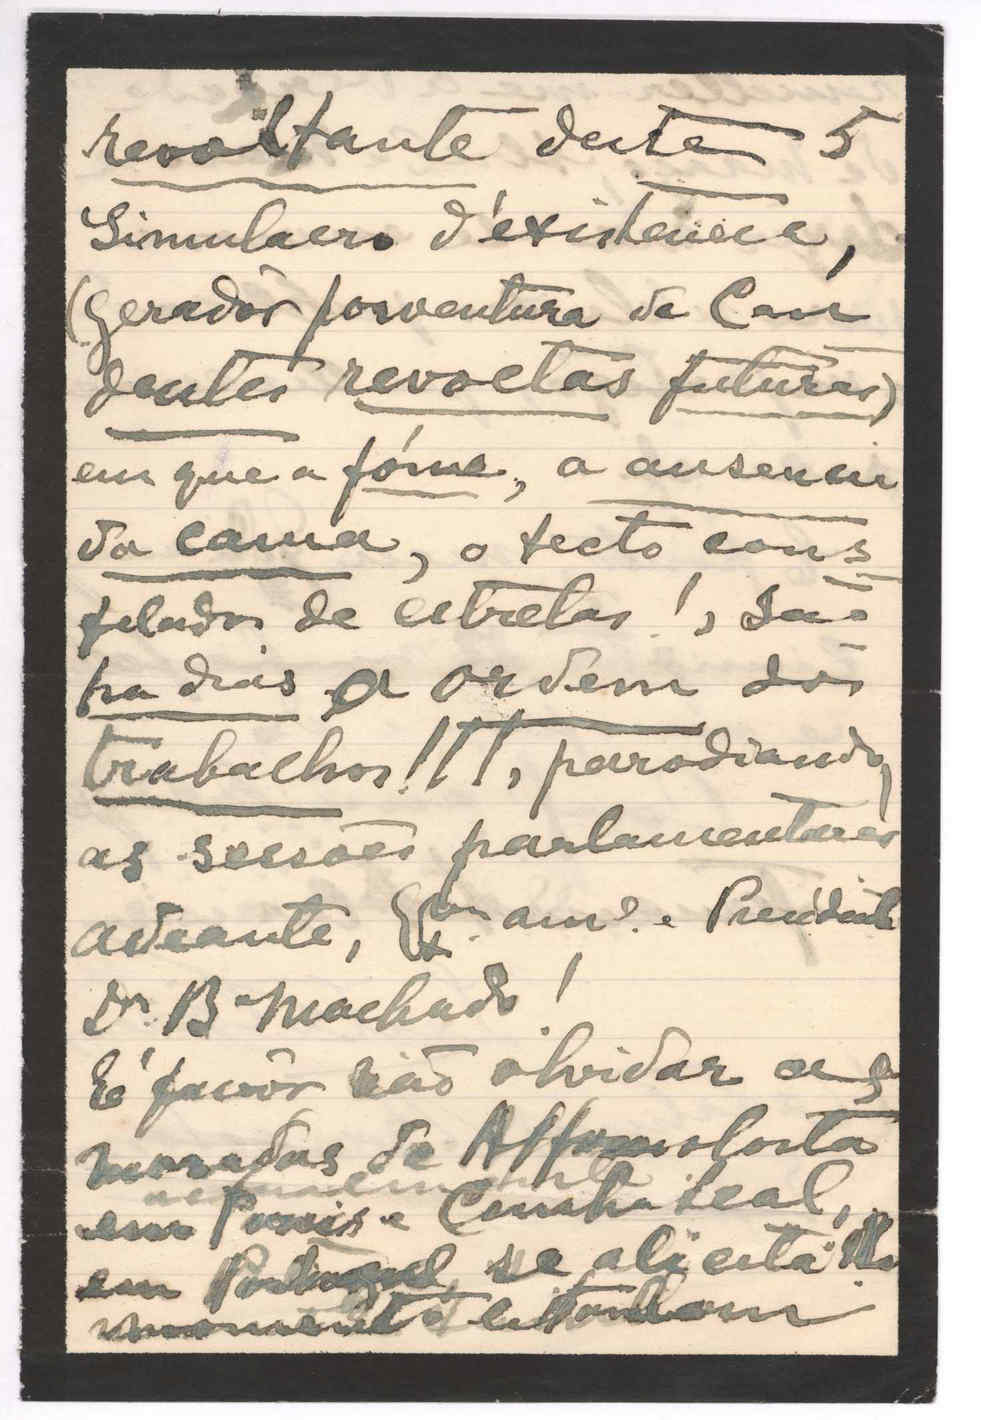 revoltante deste 5
Simulacro d'existencia,
(gerador porventura de Can
dentes revoltas futuras)
em que a fóme, a ausencia
da cama, o tecto cons
telado de estrelas!, são
ha dias a ordem dos
trabalhos!!!!, parodiando
as sessões parlamentares
adeante, Exmo. amo. e Presidente
Dr. B Machado!
É favôr não olvidar as
moradas de Affonso Costa
em Paris e Cunha Leal,
em Portugal, se ali está
momento e